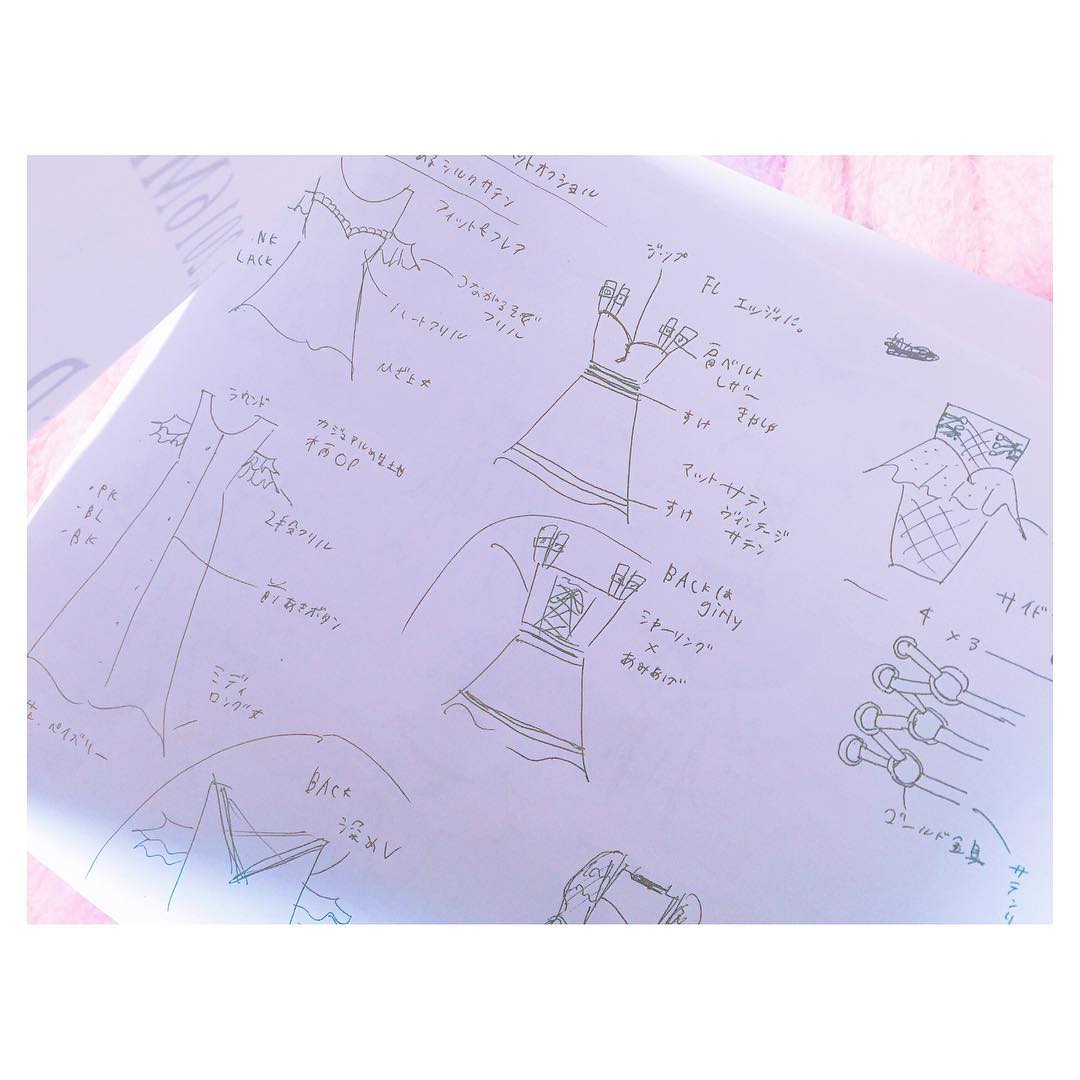 ットオフショル
シルクサテン
フィット&フレア
NK
LACK
つながるそで
フリル
ハートフリル
ひざ上丈
ジップ
FL エッジィに。
肩ベルト
レザー
すけ
マットサテン
ヴィンテージ
サテン
すけ
ラウンド
カジュアルめ生地
木百OP
・PK
・BL
・BK
2段フリル
前あきボタン
ミディ
ロング丈
ペイズリー
BACKは
girly
シャーリング
×
あみあげ
サイド
4 × 3
ゴールド金具
サテンリ
BACK
深めV